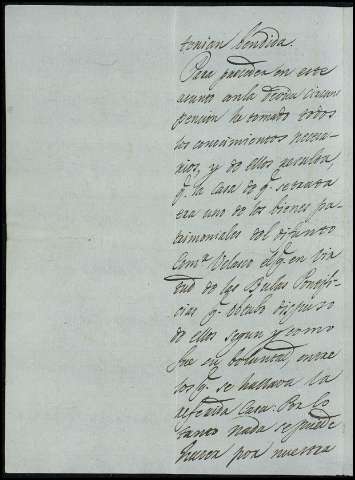 tenian bendida.
Para proceder en este
asunto con la devida circuns
peccion he tomado todos
los conocimientos necesa-
rios, y de ellos resulta,
q.e la Casa de q.e se trata
era uno de los bienes pa-
trimoniales del difunto
Velasco el q.e en vir
tud de las Bulas Pontifi-
cias q.e obtubo dispuso
de ellos segun y como
fue su boluntad, entre
los q.e se hallava la
referida Casa: Por lo
tanto nada se puede
hacer por nuestra